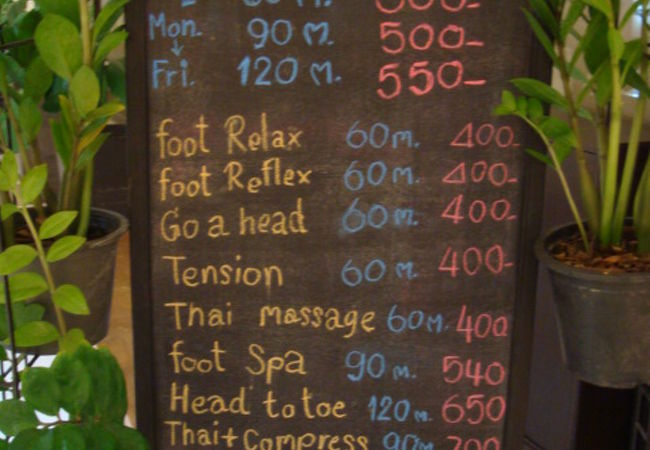 Mon. 90 m. 500-
Fri. 120 m. 550-
foot Relax 60 m. 400-
foot Reflex 60 m. 400-
Go a head 60 m. 400-
Tension 60 m. 400-
Thai massage 60 m. 400
foot Spa 90 m. 540
Head to toe 120 m. 650
Thai + Compress 90m. 700